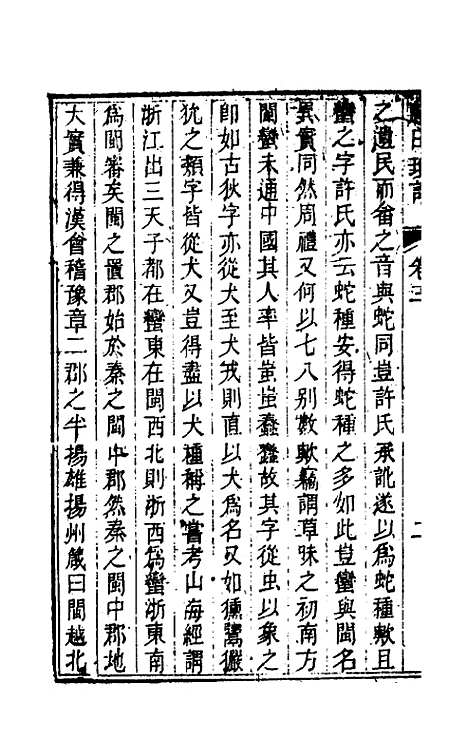 之遺民而畬之音與蛇同豈許氏承訛遂以爲蛇種歟且
蠻之字許氏亦云蛇種安得蛇種之多如此豈蠻與閩名
異實同然周禮又何以七八别數歟竊謂草昧之初南方
閩蠻未通中國其人率皆蚩蚩蠢蠢故其字從虫以象之
即如古狄字亦從犬至犬戎則直以犬爲名又如獯鬻玁
狁之類字皆從犬又豈得盡以犬種稱之嘗考山海經謂
浙江出三天子都在蠻東在閩西北則浙西爲蠻浙東南
爲閩審矣閩之置郡始於秦之閩中郡然秦之閩中郡地
大實兼得漢會稽豫章二郡之半揚雄揚州箴曰閩越北
卷三
二